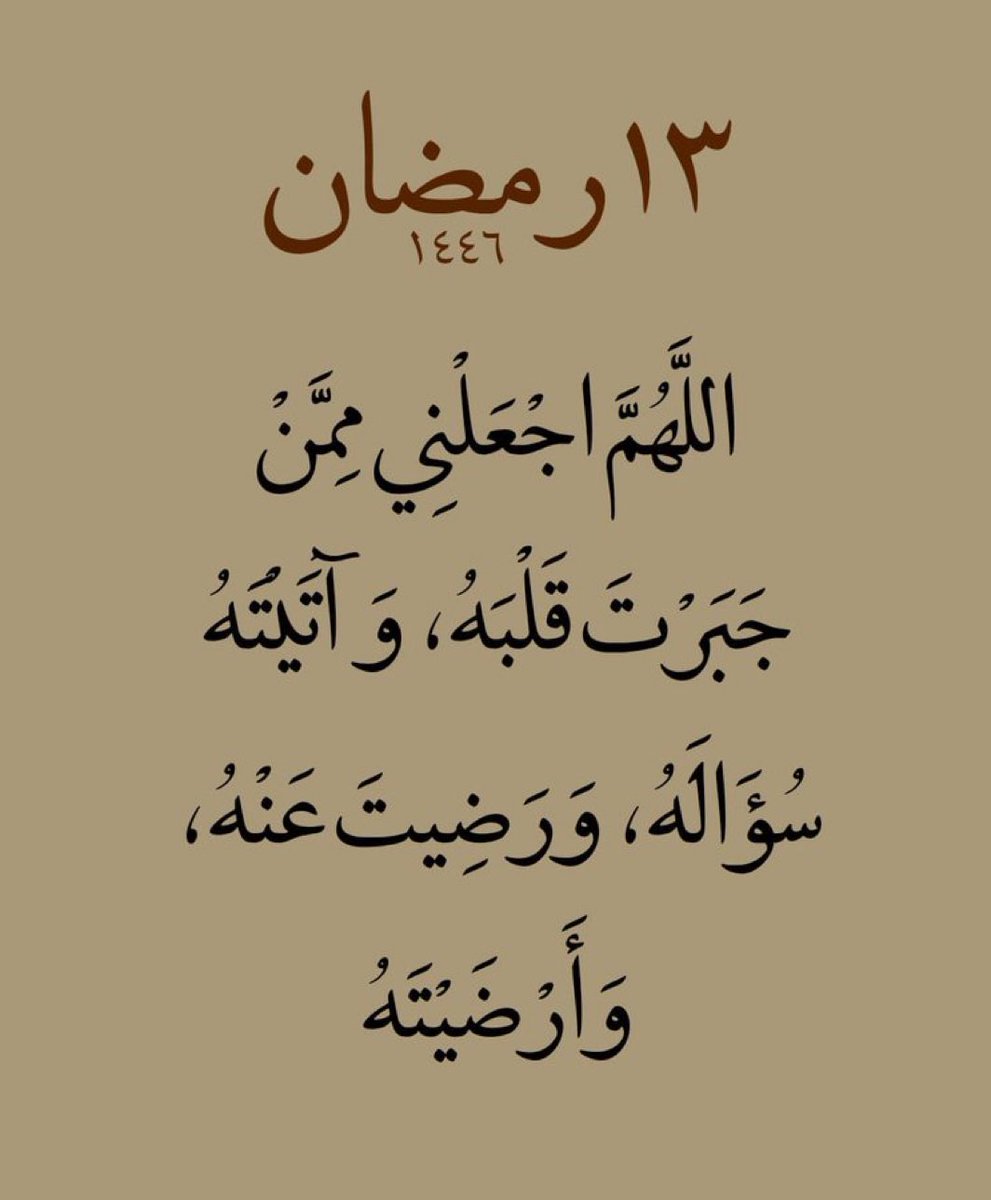 ١٣ رمضان
١٤٤٦
اللَّهُمَّ اجْعَلْنِي مِمَّنْ
جَبَرْتَ قَلْبَهُ، وَآتَيْتَهُ
سُؤَالَهُ، وَرَضِيتَ عَنْهُ،
وَأَرْضَيْتَهُ